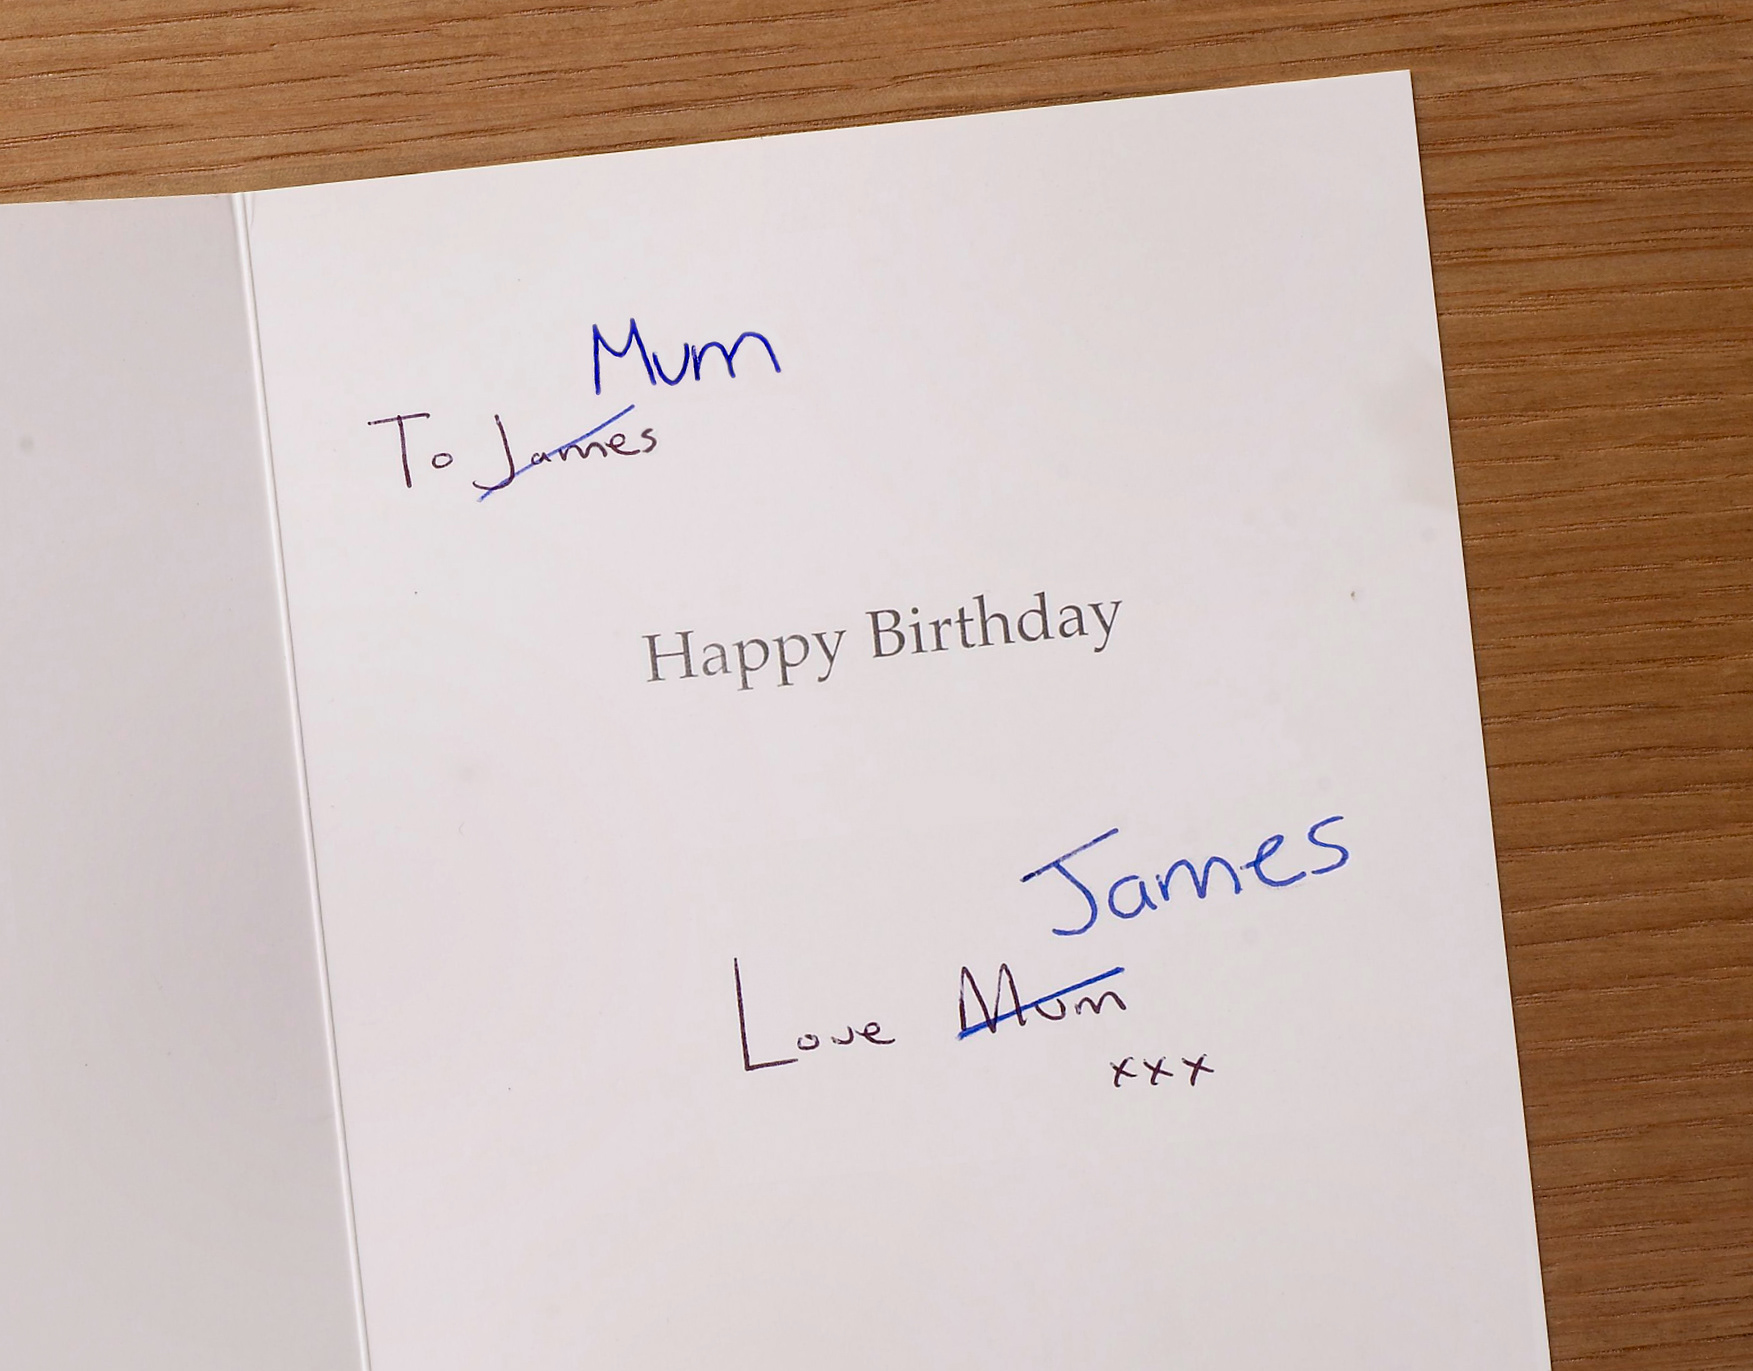 Mum
To James
Happy Birthday
James
Love Mum
xxx